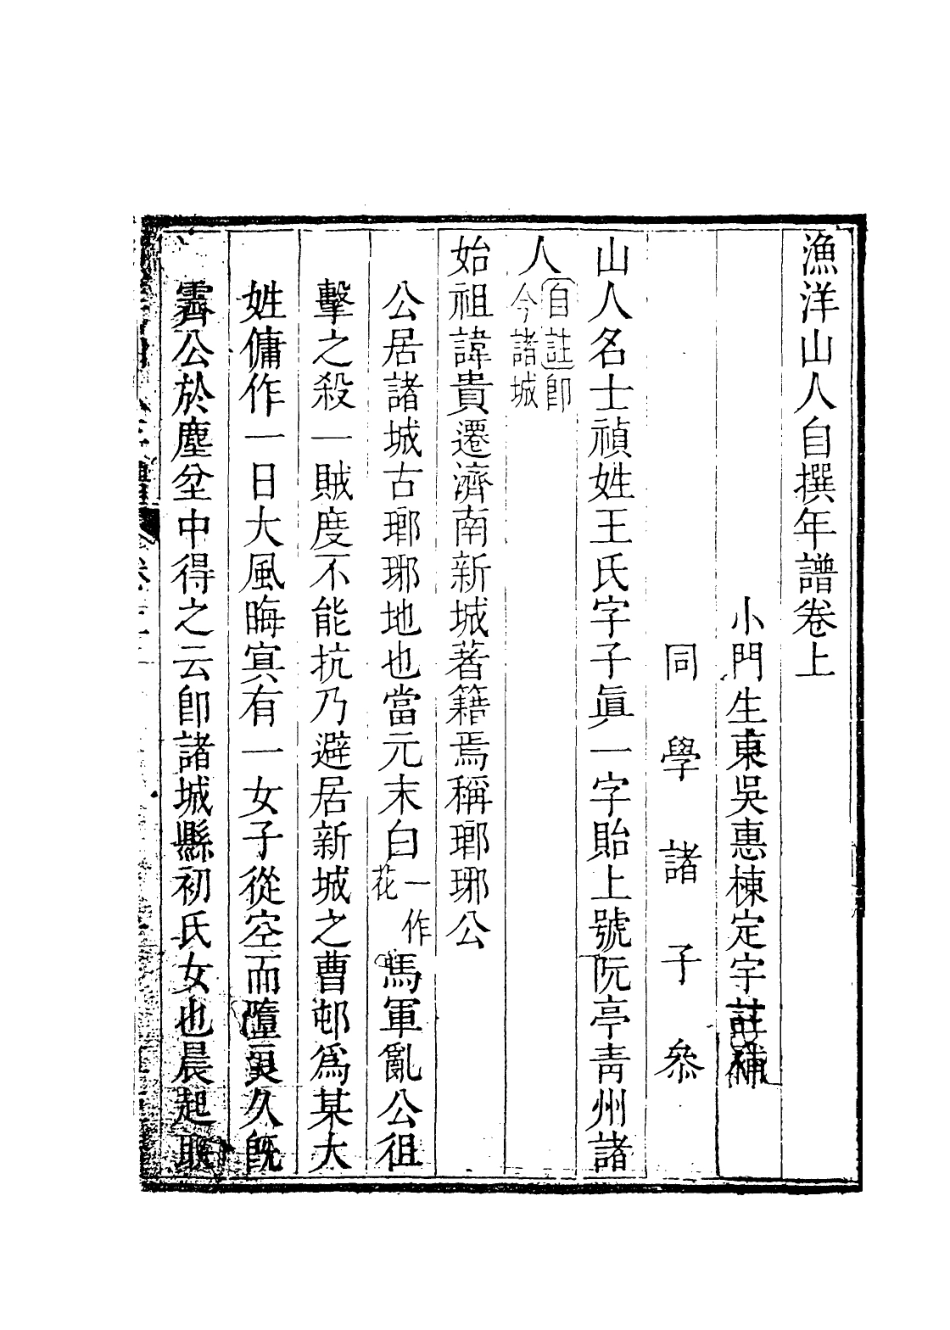 漁洋山人自撰年譜卷上
小門生東吳惠棟定宇註補
同學諸子叅
山人名士禎姓王氏字子眞一字貽上號阮亭靑州諸
人自註卽今諸城
始祖諱貴遷濟南新城著籍焉稱瑯琊公
公居諸城古瑯琊地也當元末白一作花馬軍亂公徂
擊之殺一賊度不能抗乃避居新城之曹邨爲某大
姓傭作一日大風晦寘有一女子從空而墮良久旣
霽公於塵坌中得之云卽諸城縣初氏女也晨起取